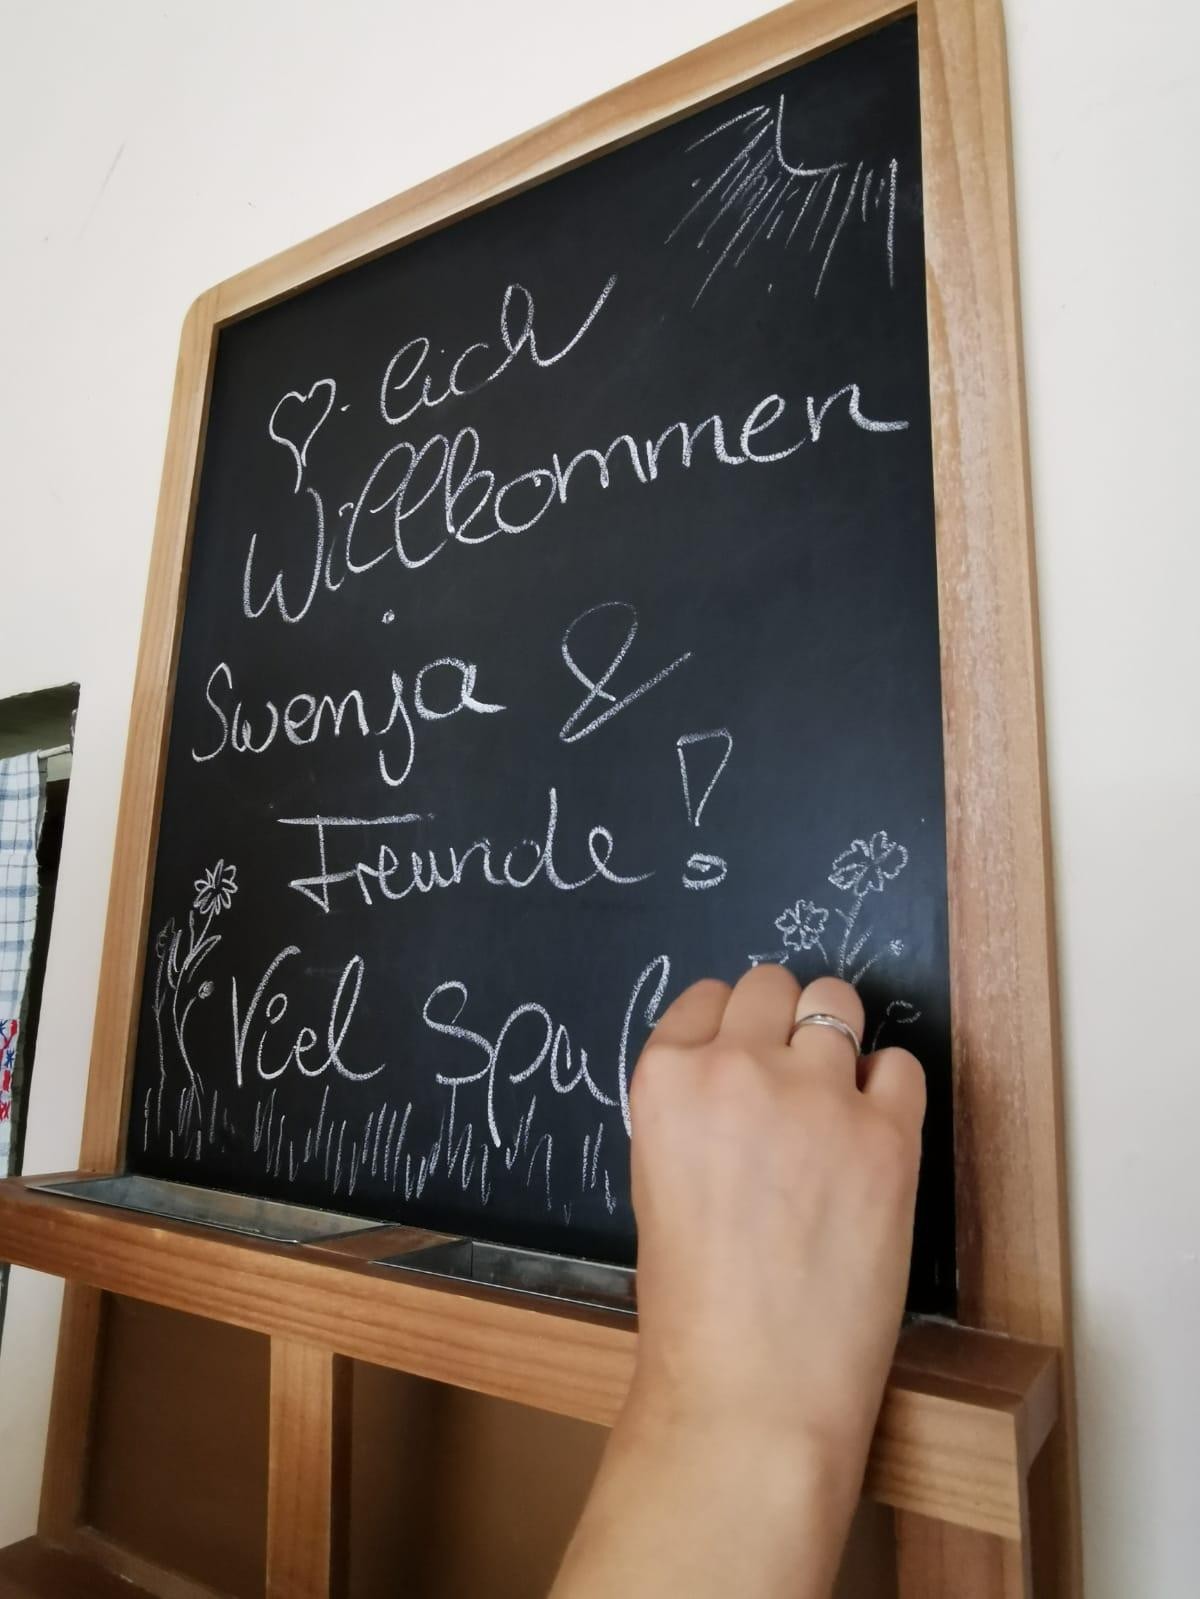 ♡-lich
Willkommen
Swenja &
Freunde!
Viel Spaß